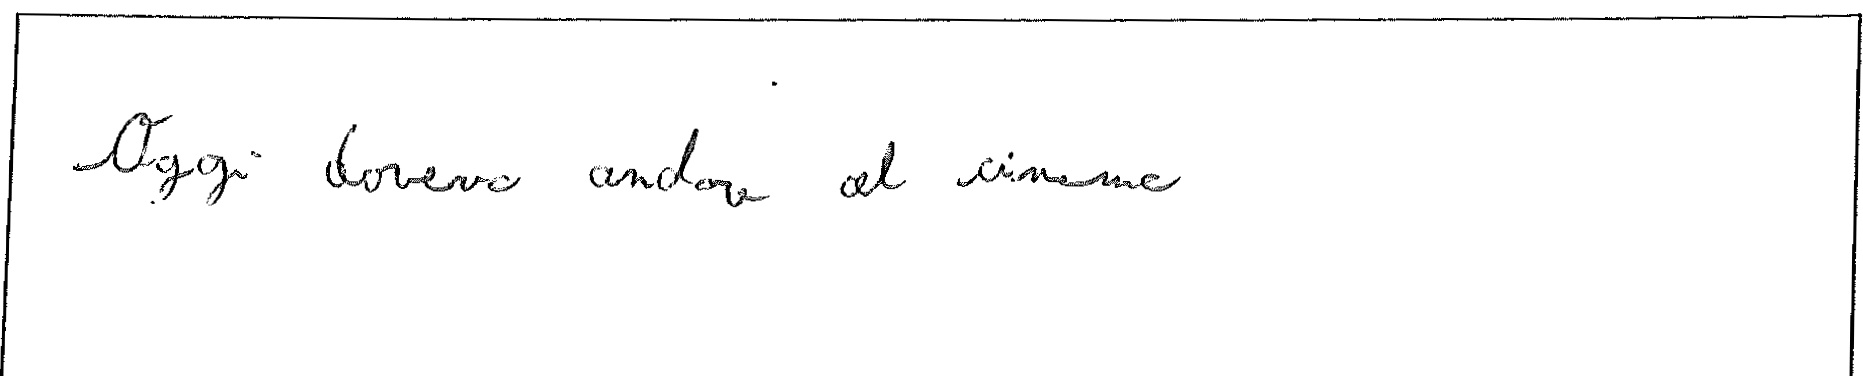 Oggi doveva andare al cinema